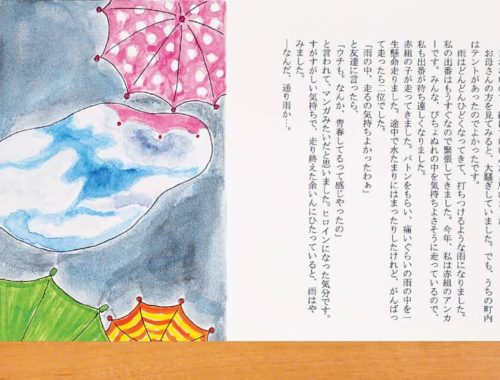 お母さんの方を見てみると、大騒ぎしていました。でも、うちの町内
はテントがあったのでよかったです。
雨はどんどんひどくなってきて、打ちつけるような雨になりました。
私の出番はもうすぐなので緊張してきました。今年、私は赤組のアンカ
ーです。みんな、びちょぬれの中を気持ちよさそうに走っているので、
私も出番が待ち遠しくなりました。
赤組の子が走ってきました。バトンをもらい、痛いぐらいの雨の中を一
生懸命走りました。途中で水たまりにはまったりしたけれど、がんばっ
て走ったら二位でした。
「雨の中、走るの気持ちよかったわぁ」
と友達に言ったら、
「ウチも。なんか、青春してるって感じやったの」
と言われて、マンガみたいだと思いました。ヒロインになった気分です。
すがすがしい気持ちで、走り終えた余いんにひたっていると、雨はや
みました。
―なんだ、通り雨か…。